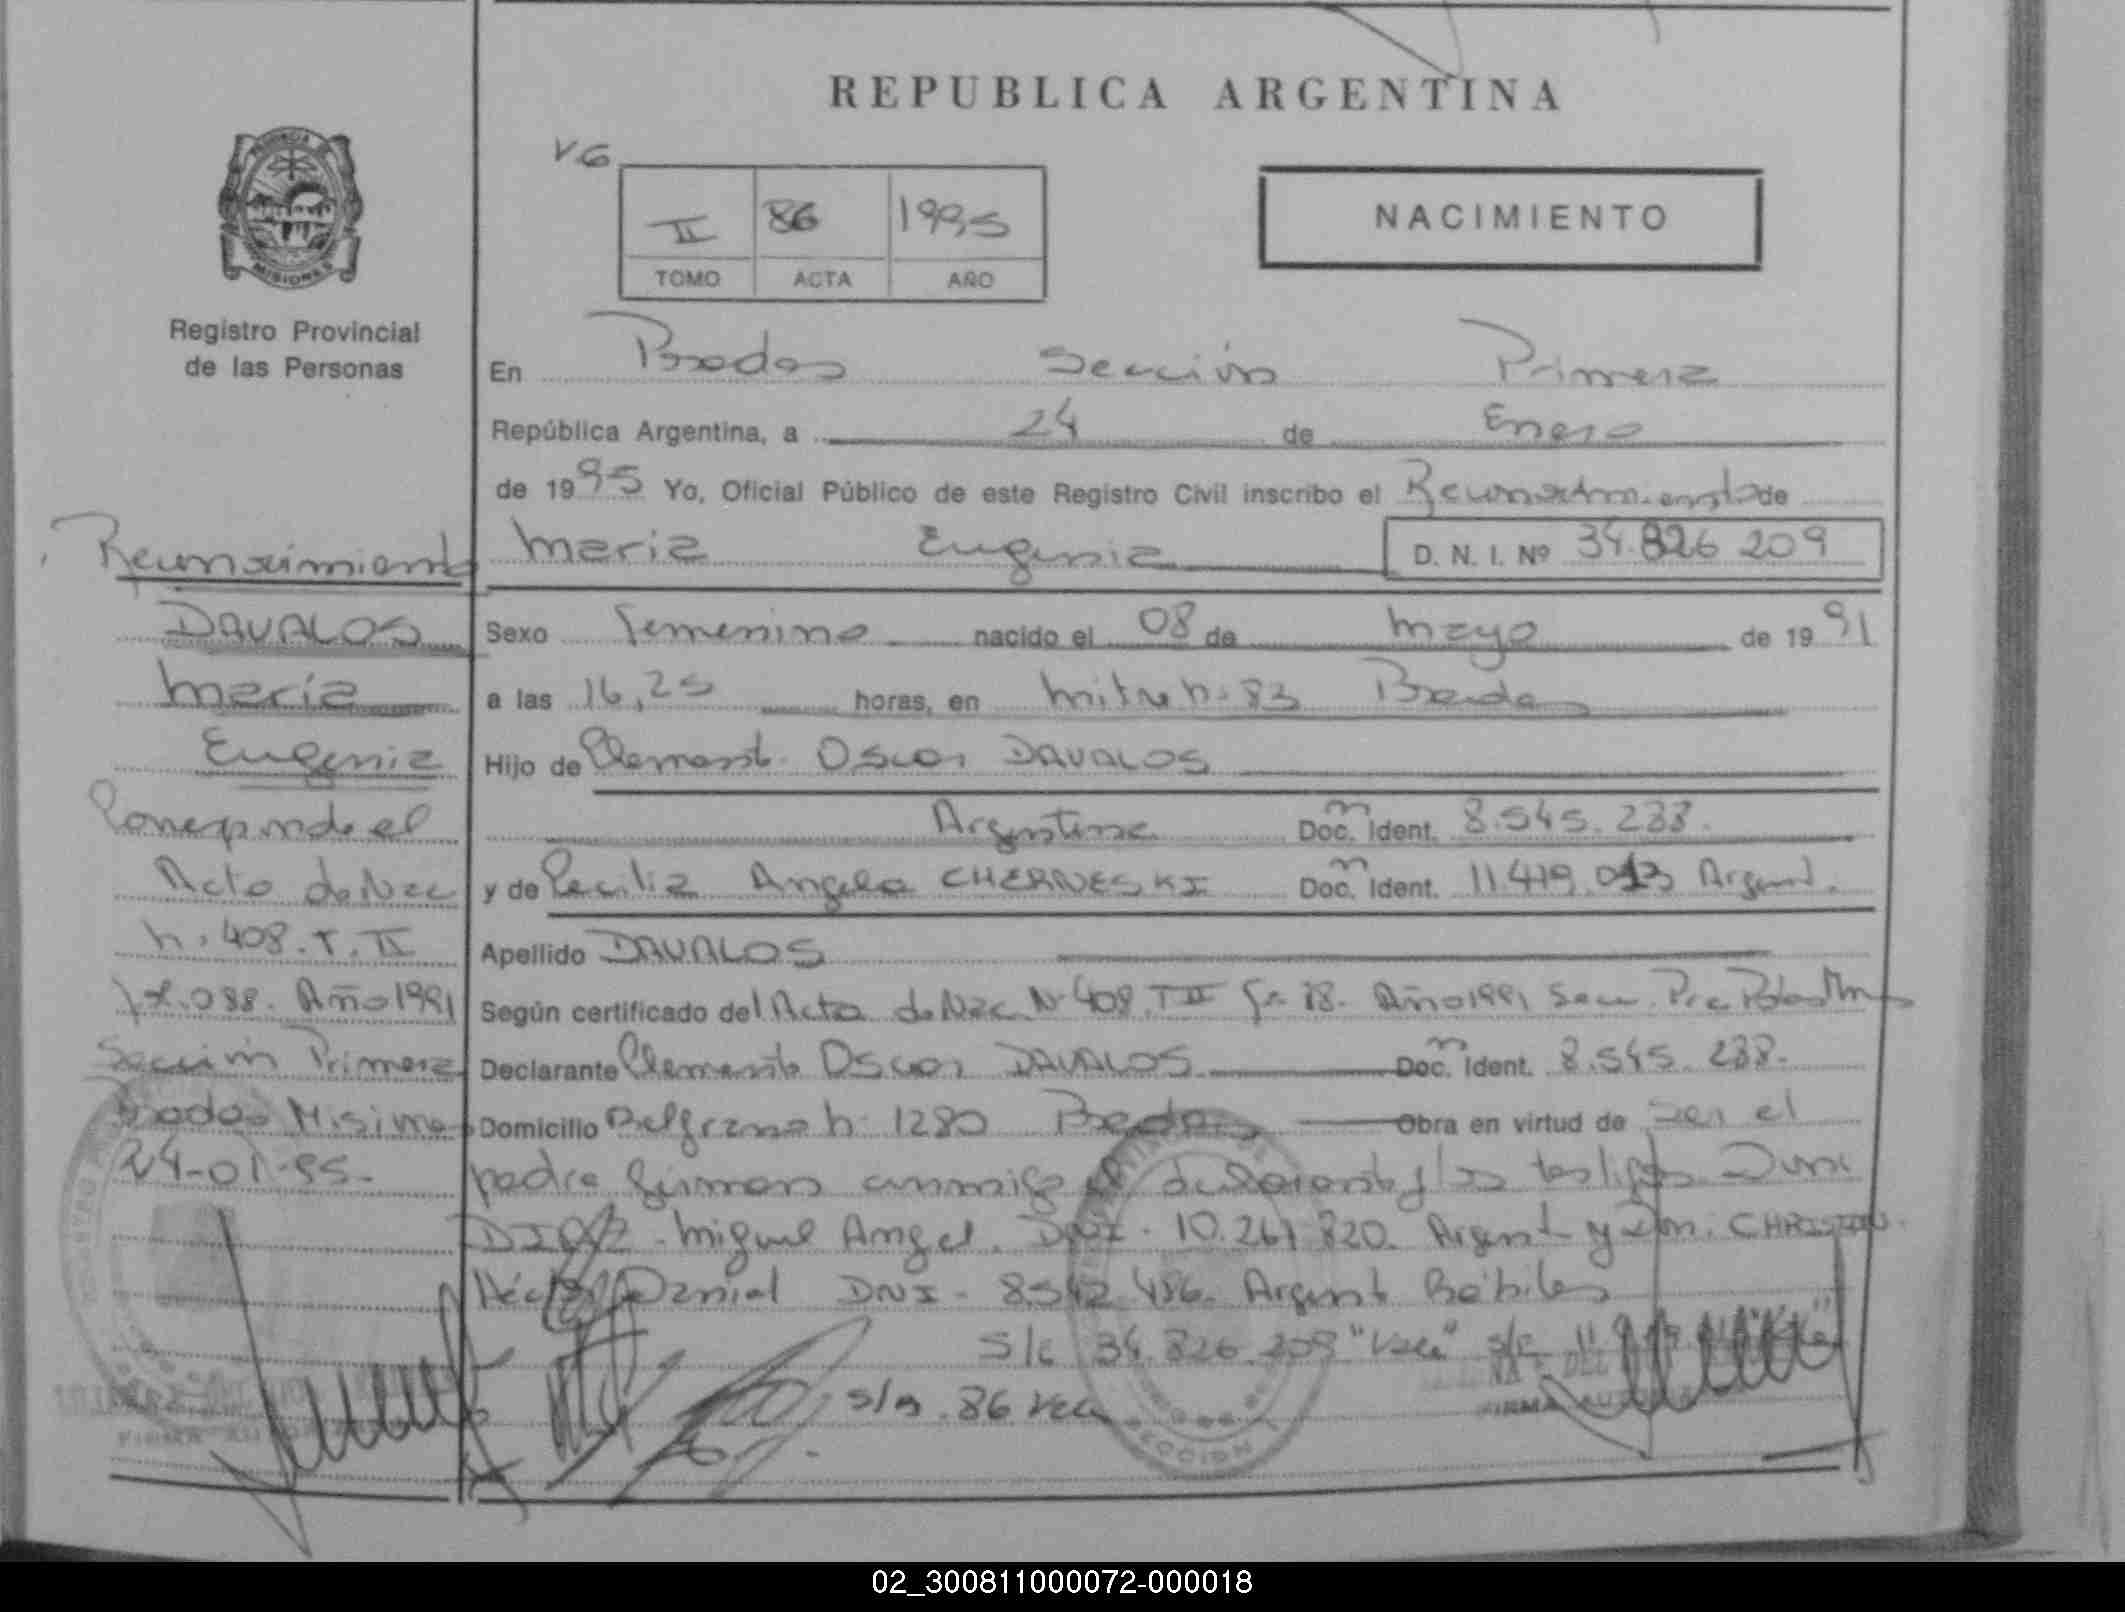 REPUBLICA ARGENTINA
PROVINCIA
MISIONES
Registro Provincial
de las Personas
V6
II 86 1995
TOMO ACTA AÑO
NACIMIENTO
En Posadas Sección Primera
República Argentina, a 24 de Enero
de 1995 Yo, Oficial Público de este Registro Civil inscribo el Reconocimiento de
Maria Eugenia D. N. I. Nº 34.826 209
Sexo Femenino nacido el 08 de Mayo de 1991
a las 16,25 horas, en Mitre n. 83 Posadas
Hijo de Clemente Oscar DAVALOS
Argentina Doc. Ident. 8.545.288.
y de Cecilia Angela CHERNESKI Doc. Ident. 11.419.013 Argent.
Apellido DAVALOS
Según certificado del Acta de Nac N. 408. T II Fº 88. Año 1991 Secc. Pra Posadas Mnes
Declarante Clemente Oscar DAVALOS Doc. Ident. 8.545.288.
Domicilio Belgrano n. 1280 Posadas Obra en virtud de ser el
padre firman conmigo el declarante y los testigos Don
DIAZ Miguel Angel. DNI. 10.261 820. Argent y Don.
Héctor Daniel DNI. 8.542.486. Argent Hábiles
S/c 34.826.209 "Vale" s/c
s/b. 86 Vale
Reconocimiento
DAVALOS
Maria
Eugenia
Corresponde al
Acta de Nac
n. 408. T. II
Fº. 088. Año 1991
Sección Primera
Posadas Misiones
24-01-95.
SECCION
02_300811000072-000018